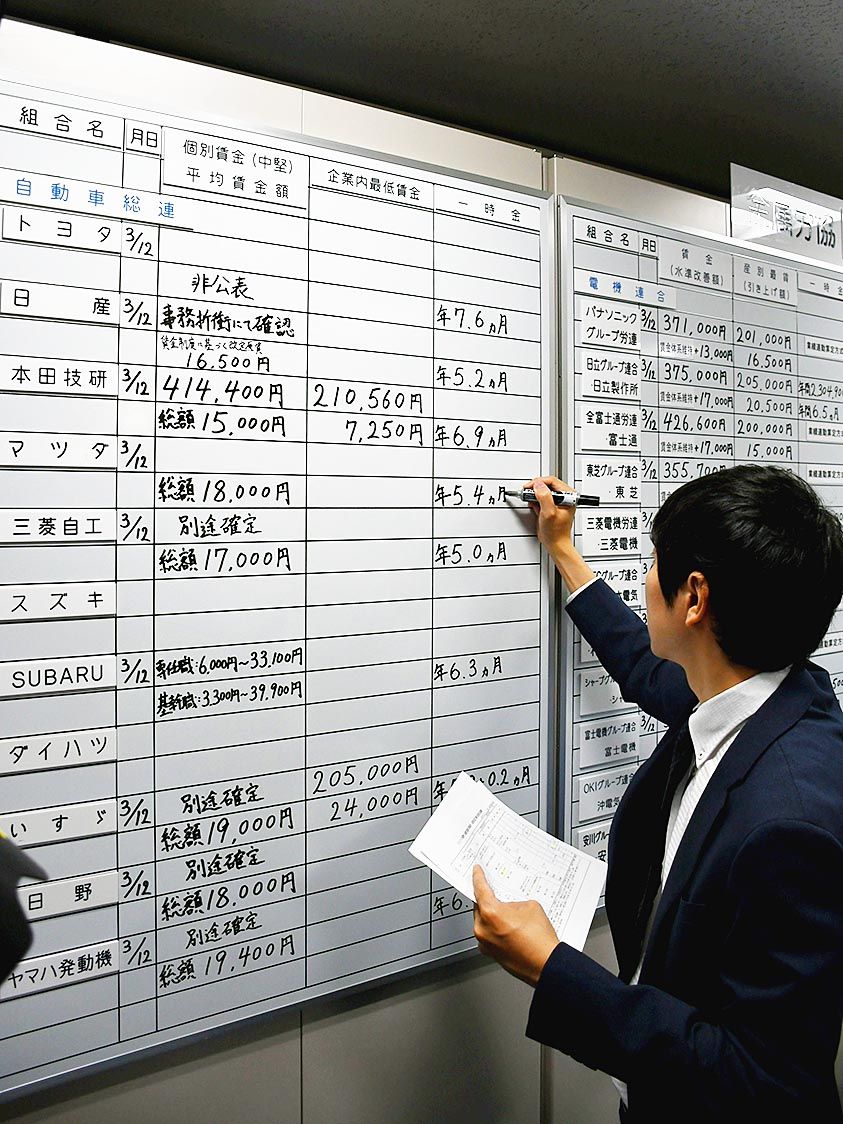 組合名 月日 個別賃金(中堅) 企業内最低賃金 一時金
平均賃金額
自動車総連
トヨタ 3/12
非公表 年7.6ヵ月
日産 3/12 事務折衝にて確認
賃金制度に基づく改定原資
16,500円 年5.2ヵ月
本田技研 3/12 414,400円 210,560円
総額15,000円 7,250円 年6.9ヵ月
マツダ 3/12
総額18,000円 年5.4ヵ月
三菱自工 3/12 別途確定
総額17,000円 年5.0ヵ月
スズキ
SUBARU 3/12 専任職:6,000円〜33,100円 年6.3ヵ月
基幹職:3,300円〜39,900円
ダイハツ
205,000円
いすゞ 3/12 別途確定 24,000円 0.2ヵ月
総額19,000円
日野 3/12 別途確定
総額18,000円 年6.
ヤマハ発動機 3/12 別途確定
総額19,400円
金属労協
組合名 月日 賃金 産別最賃 一時
(水準改善額) (引き上げ額)
電機連合
パナソニック 3/12 371,000円 201,000円 業績連動算定方式
グループ労連 賃金体系維持+13,000円 16,500円
日立グループ連合 3/12 375,000円 205,000円 年間2,304,900
・日立製作所 賃金体系維持+17,000円 20,500円 年間6.5ヵ月
全富士通労連 3/12 426,600円 200,000円 業績連動算定方
・富士通 賃金体系維持+17,000円 15,000円
東芝グループ連合 3/12 355,700
・東芝
三菱電機労連
・三菱電機
グループ連合
電気
シャープグル
・シャ
富士電機グループ連合
富士電機
OKIグループ連合
沖電気
安川グループ